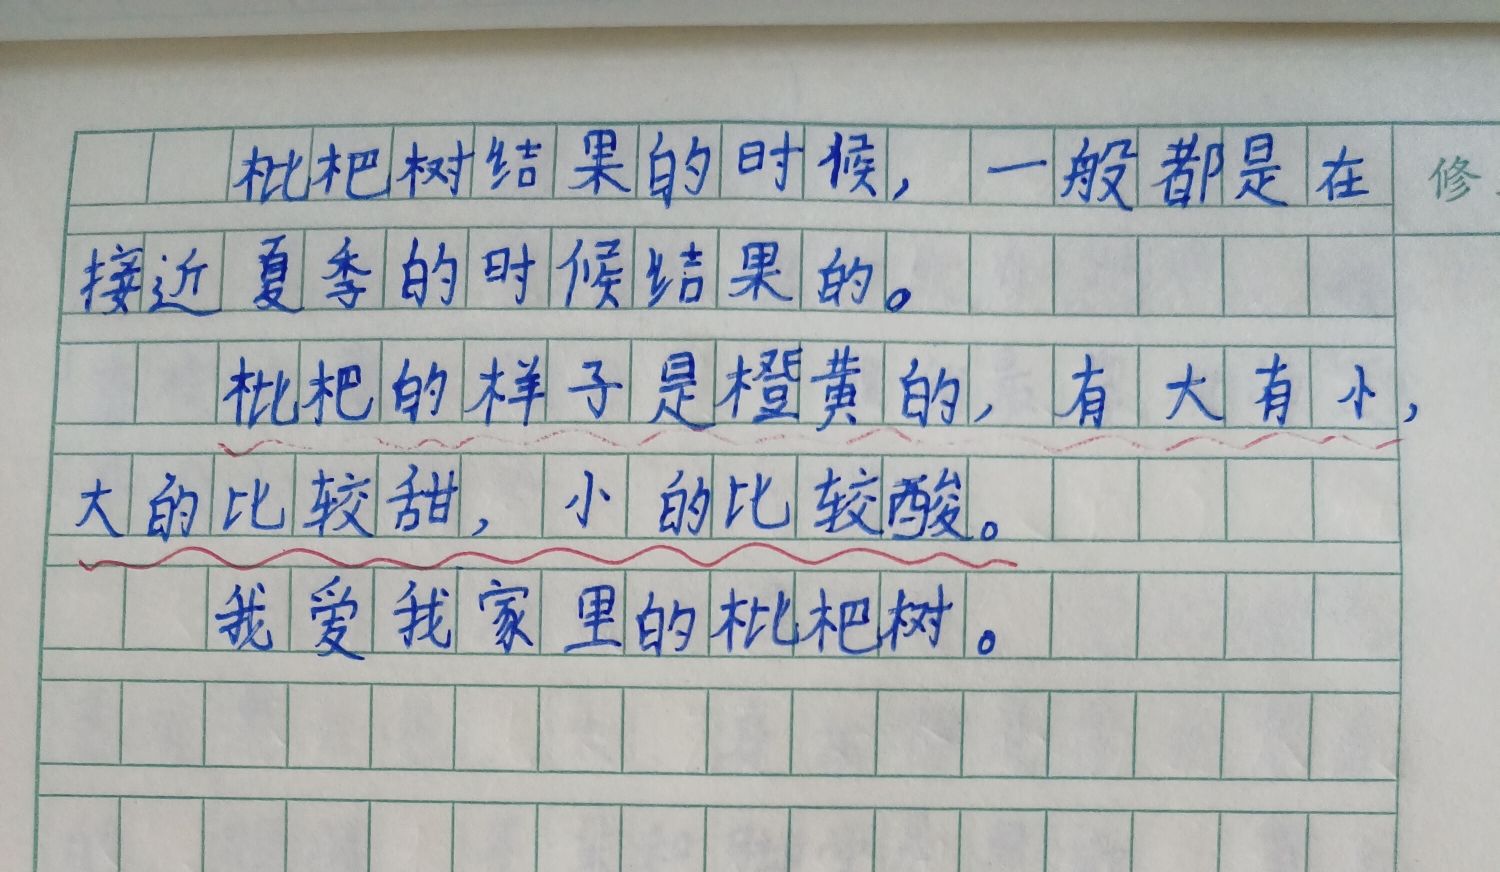 枇杷树结果的时候，一般都是在
修
接近夏季的时候结果的。
枇杷的样子是橙黄的，有大有小，
大的比较甜，小的比较酸。
我爱我家里的枇杷树。